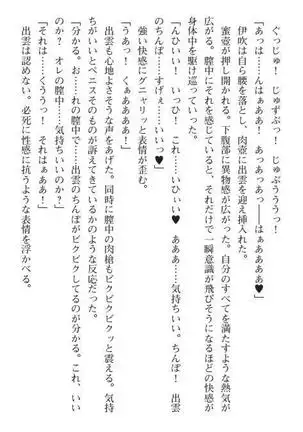 ぐっじゅ！　じゅずぷっ！　じゅぷううう！
「あっは……んはぁああ！　あっあっあっ――はぁああああ♥」
　伊吹は自ら腰を落とし、肉壺に出雲を迎え挿入れた。
　蜜壺が押し開かれる。下腹部に異物感が広がった。自分のすべてを満たすような熱気が
広がる。膣中にそれを感じていると、それだけで一瞬意識が飛びそうになるほどの快感が
身体中を駆け巡っていった。
「んひいい！　いっひ！　これ……いひぃい♥　あああ……気持ちいい。ちんぽ！　出雲
のちんぽ……すげぇ……いいっ♥」
　強い快感にグニャリッと表情が歪む。
「うあっ！　くぁああああ！」
　出雲も心地よさそうな声をあげた。同時に膣中の肉槍もビクビクッと震える。気持
ちがいいとペニスそのものが訴えてきているかのような反応だった。
「分かる。お……れの膣中で……出雲のちんぽがビクビクしてるのが分かる。これ、いい
のか？　オレの膣中……気持ちいいのか？」
「それは……くううっ！　それはぁああ！」
　出雲は認めない。必死に性感に抗うような表情を浮かべる。